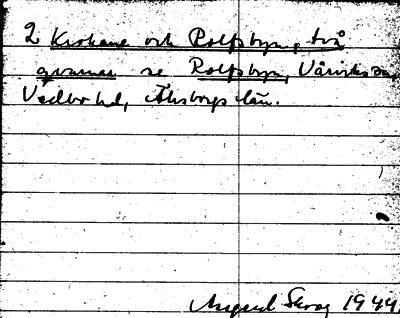 2 Krokane och Rolfsbyn, två
gårdar se Rolfsbyn, Vårviks sn,
Vedbo hd, Älvsborgs län.
1944.